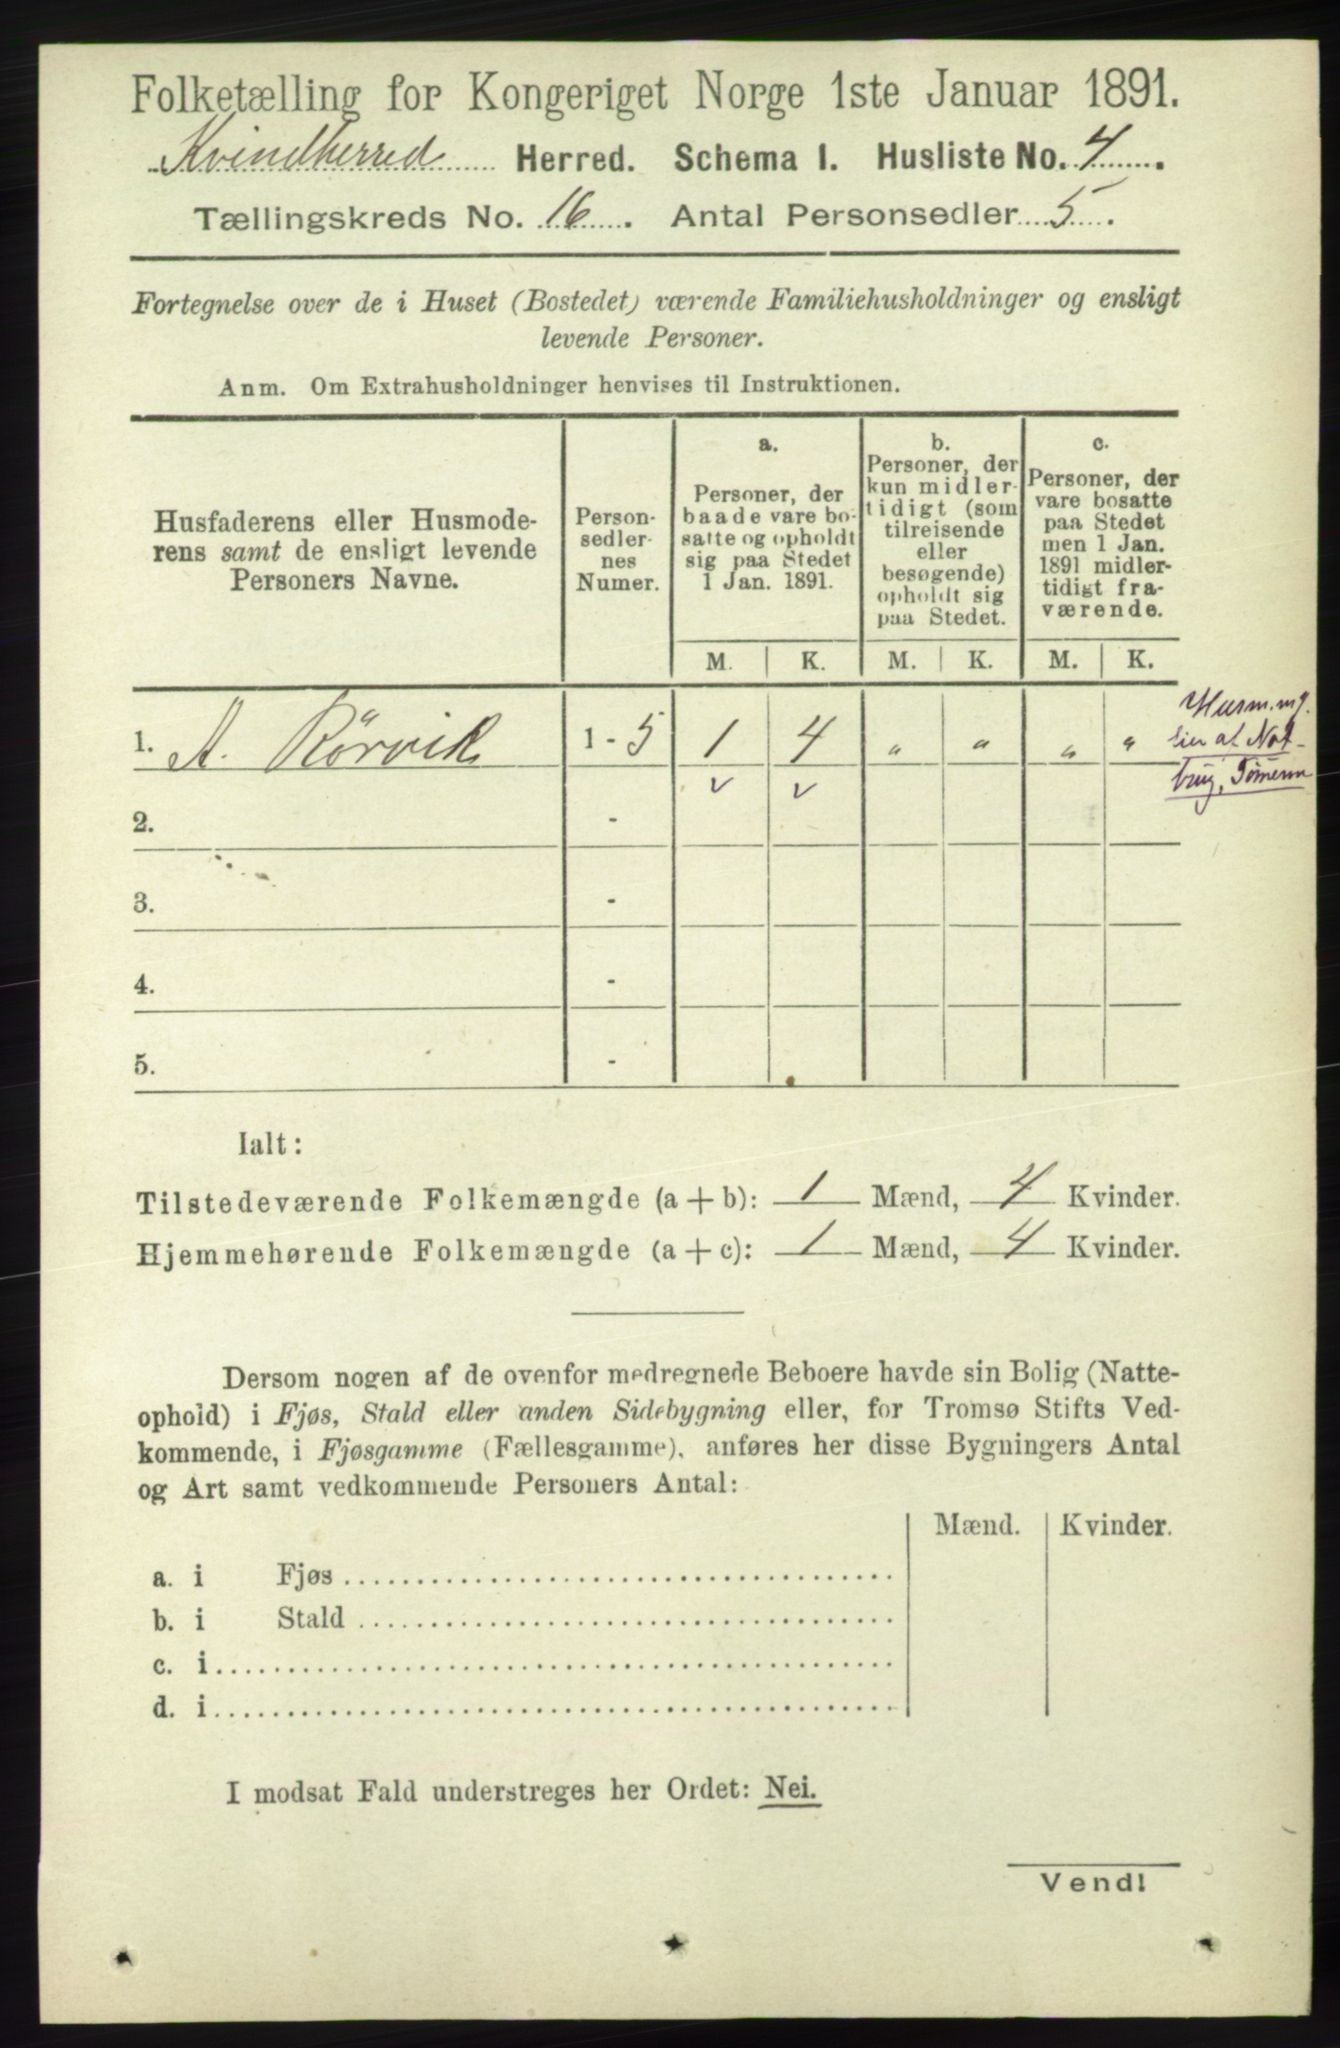 Folketælling for Kongeriget Norge 1ste Januar 1891.
Kvindherred Herred. Schema 1. Husliste No. 4.
Tællingskreds No. 16. Antal Personsedler 5.
Fortegnelse over de i Huset (Bostedet) værende Familiehusholdninger og ensligt
levende Personer.
Anm. Om Extrahusholdninger henvises til Instruktionen.
Husfaderens eller Husmode-
rens samt de ensligt levende
Personers Navne.
Person-
sedler-
nes
Numer.
a.
Personer, der
baade vare bo-
satte og opholdt
sig paa Stedet
1 Jan. 1891.
b.
Personer, der
kun midler-
tidigt (som
tilreisende
eller
besøgende)
opholdt sig
paa Stedet.
c.
Personer, der
vare bosatte
paa Stedet
men 1 Jan.
1891 midler-
tidigt fra-
værende.
M. K. M. K. M. K.
1. A. Rörvik 1-5 1 4 " " " "
Husm. m.
v v
2. -
3. -
4. -
5. -
Ialt:
Tilstedeværende Folkemængde (a + b): 1 Mænd, 4 Kvinder.
Hjemmehørende Folkemængde (a + c): 1 Mænd, 4 Kvinder.
Dersom nogen af de ovenfor medregnede Beboere havde sin Bolig (Natte-
ophold) i Fjøs, Stald eller anden Sidebygning eller, for Tromsø Stifts Ved-
kommende, i Fjøsgamme (Fællesgamme), anføres her disse Bygningers Antal
og Art samt vedkommende Personers Antal:
Mænd. Kvinder.
a. i Fjøs
b. i Stald
c. i
d. i
I modsat Fald understreges her Ordet: Nei.
Vend!